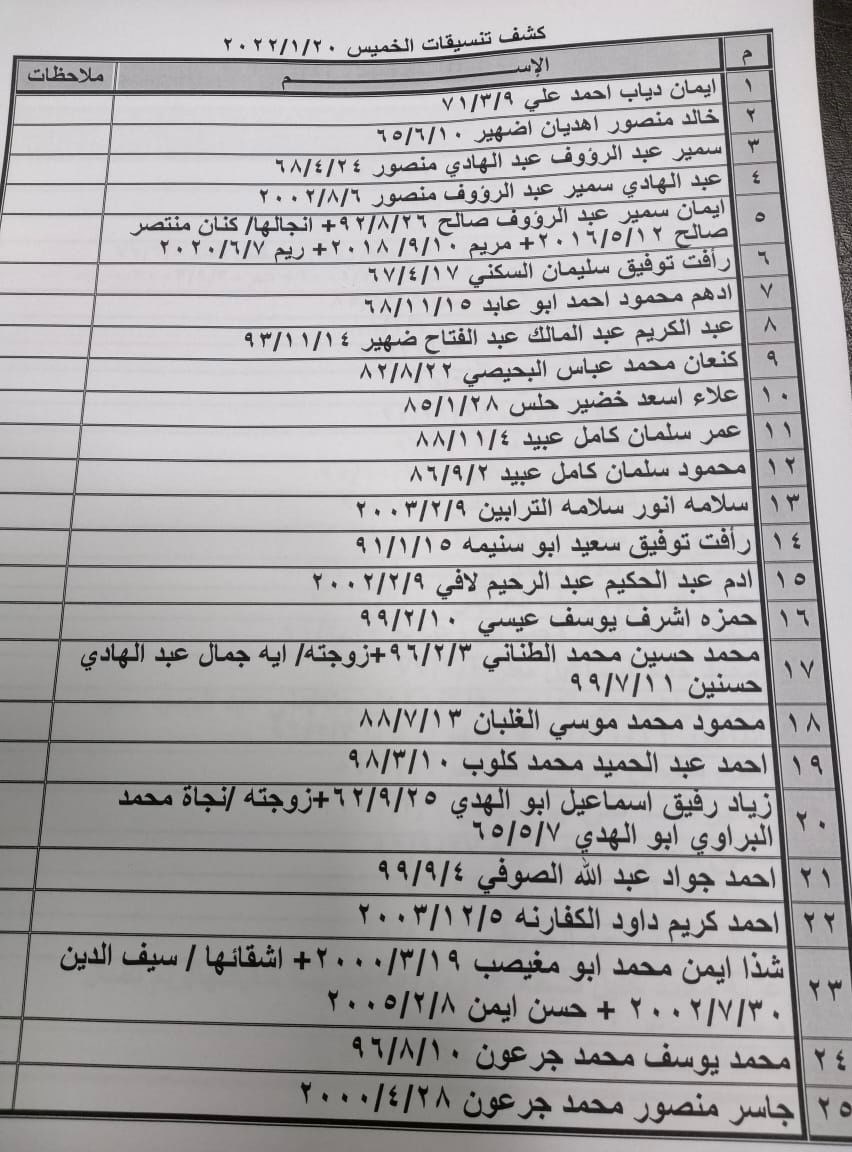 كشف تنسيقات الخميس ٢٠٢٢/١/٢٠
م الإســـــــم ملاحظات
١ ايمان دياب احمد علي ٧١/٣/٩
٢ خالد منصور اهديان اضهير ٦٥/٦/١٠
٣ سمير عبد الرؤوف عبد الهادي منصور ٦٨/٤/٢٤
٤ عبد الهادي سمير عبد الرؤوف منصور ٢٠٠٢/٨/٦
٥ ايمان سمير عبد الرؤوف صالح ٩٢/٨/٢٦+ انجالها/ كنان منتصر
صالح ٢٠١٦/٥/١٢+ مريم ٢٠١٨ /٩/١٠+ ريم ٢٠٢٠/٦/٧
٦ رأفت توفيق سليمان السكني ٦٧/٤/١٧
٧ ادهم محمود احمد ابو عابد ٦٨/١١/١٥
٨ عبد الكريم عبد المالك عبد الفتاح ضهير ٩٣/١١/١٤
٩ كنعان محمد عباس البحيصي ٨٢/٨/٢٢
١٠ علاء اسعد خضير حلس ٨٥/١/٢٨
١١ عمر سلمان كامل عبيد ٨٨/١١/٤
١٢ محمود سلمان كامل عبيد ٨٦/٩/٢
١٣ سلامه انور سلامه الترابين ٢٠٠٣/٢/٩
١٤ رأفت توفيق سعيد ابو سنيمه ٩١/١/١٥
١٥ ادم عبد الحكيم عبد الرحيم لافي ٢٠٠٢/٢/٩
١٦ حمزه اشرف يوسف عيسي ٩٩/٢/١٠
١٧ محمد حسين محمد الطناني ٩٦/٢/٣+زوجته/ ايه جمال عبد الهادي
حسنين ٩٩/٧/١١
١٨ محمود محمد موسي الغلبان ٨٨/٧/١٣
١٩ احمد عبد الحميد محمد كلوب ٩٨/٣/١٠
٢٠ زياد رفيق اسماعيل ابو الهدي ٦٢/٩/٢٥+زوجته /نجاة محمد
البراوي ابو الهدي ٦٥/٥/٧
٢١ احمد جواد عبد الله الصوفي ٩٩/٩/٤
٢٢ احمد كريم داود الكفارنه ٢٠٠٣/١٢/٥
٢٣ شذا ايمن محمد ابو مغيصب ٢٠٠٠/٣/١٩+ اشقائها / سيف الدين
٢٠٠٢/٧/٣٠ + حسن ايمن ٢٠٠٥/٢/٨
٢٤ محمد يوسف محمد جرعون ٩٦/٨/١٠
٢٥ جاسر منصور محمد جرعون ٢٠٠٠/٤/٢٨